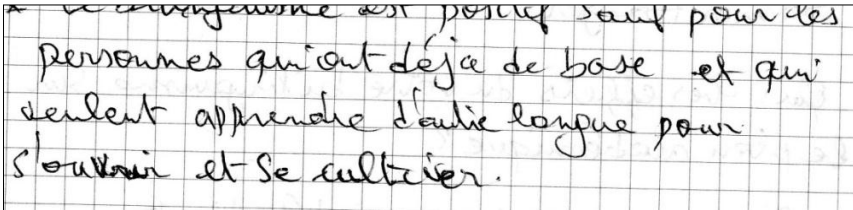 est positif sauf pour les
personnes qui ont déja de base et qui
veulent apprendre d'autre langue pour
s'ouvrir et se cultiver.